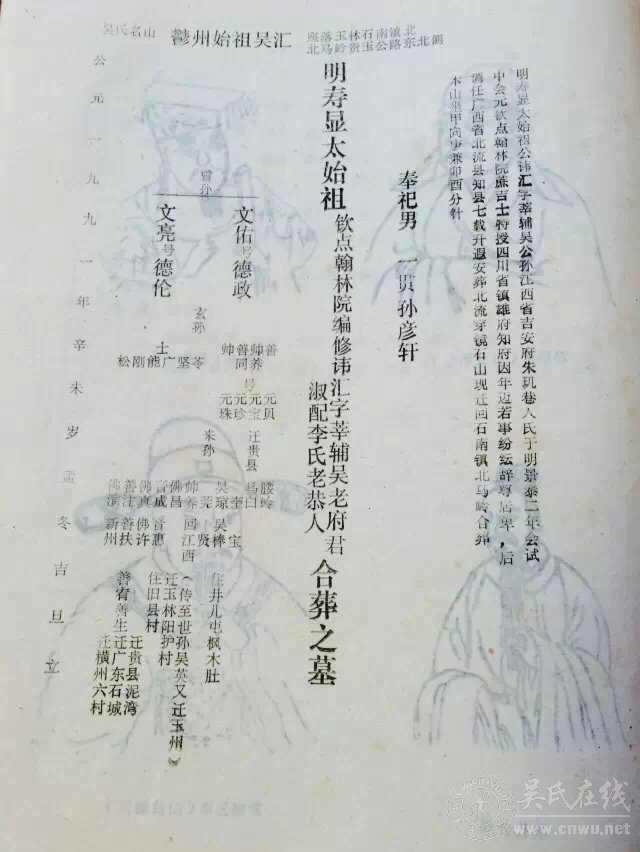 吴氏名山
鬱州始祖吴汇
座落玉林石南镇北
北马岭贵玉公路东北侧
明寿显太始祖公讳汇字莘辅吴公孙江西省吉安府朱玑巷人氏于明景泰二年会试
中会元钦点翰林院庶吉士特授四川省镇雄府知府因年迈若事纷纭辞尊居卑，后
调任广西省北流县知县七载升遐安葬北流穿镜石山现迁回石南镇北马岭合葬
本山坐甲向庚兼卯酉分针
奉祀男 一贯 孙彦轩
明寿显太始祖
钦点翰林院编修讳汇字莘辅吴老府君
淑配李氏老恭人
合葬之墓
曾孙
文佑号德政
文亮号德伦
玄孙
帅善帅善
同养
号
元元元元
珠珍宝贝
士
松刚能广坚苓
来孙
迁贵县
腰岭
宝
吴棒
回江西
住井儿屯枫木肚
（传至世孙吴英又迁玉州）
迁玉林阳护村
住旧县村
善宥善生
迁贵县泥湾
迁广东石城
迁横州六村
公元一九九一年辛未岁孟冬吉旦立
吴氏在线
www.cnwu.net